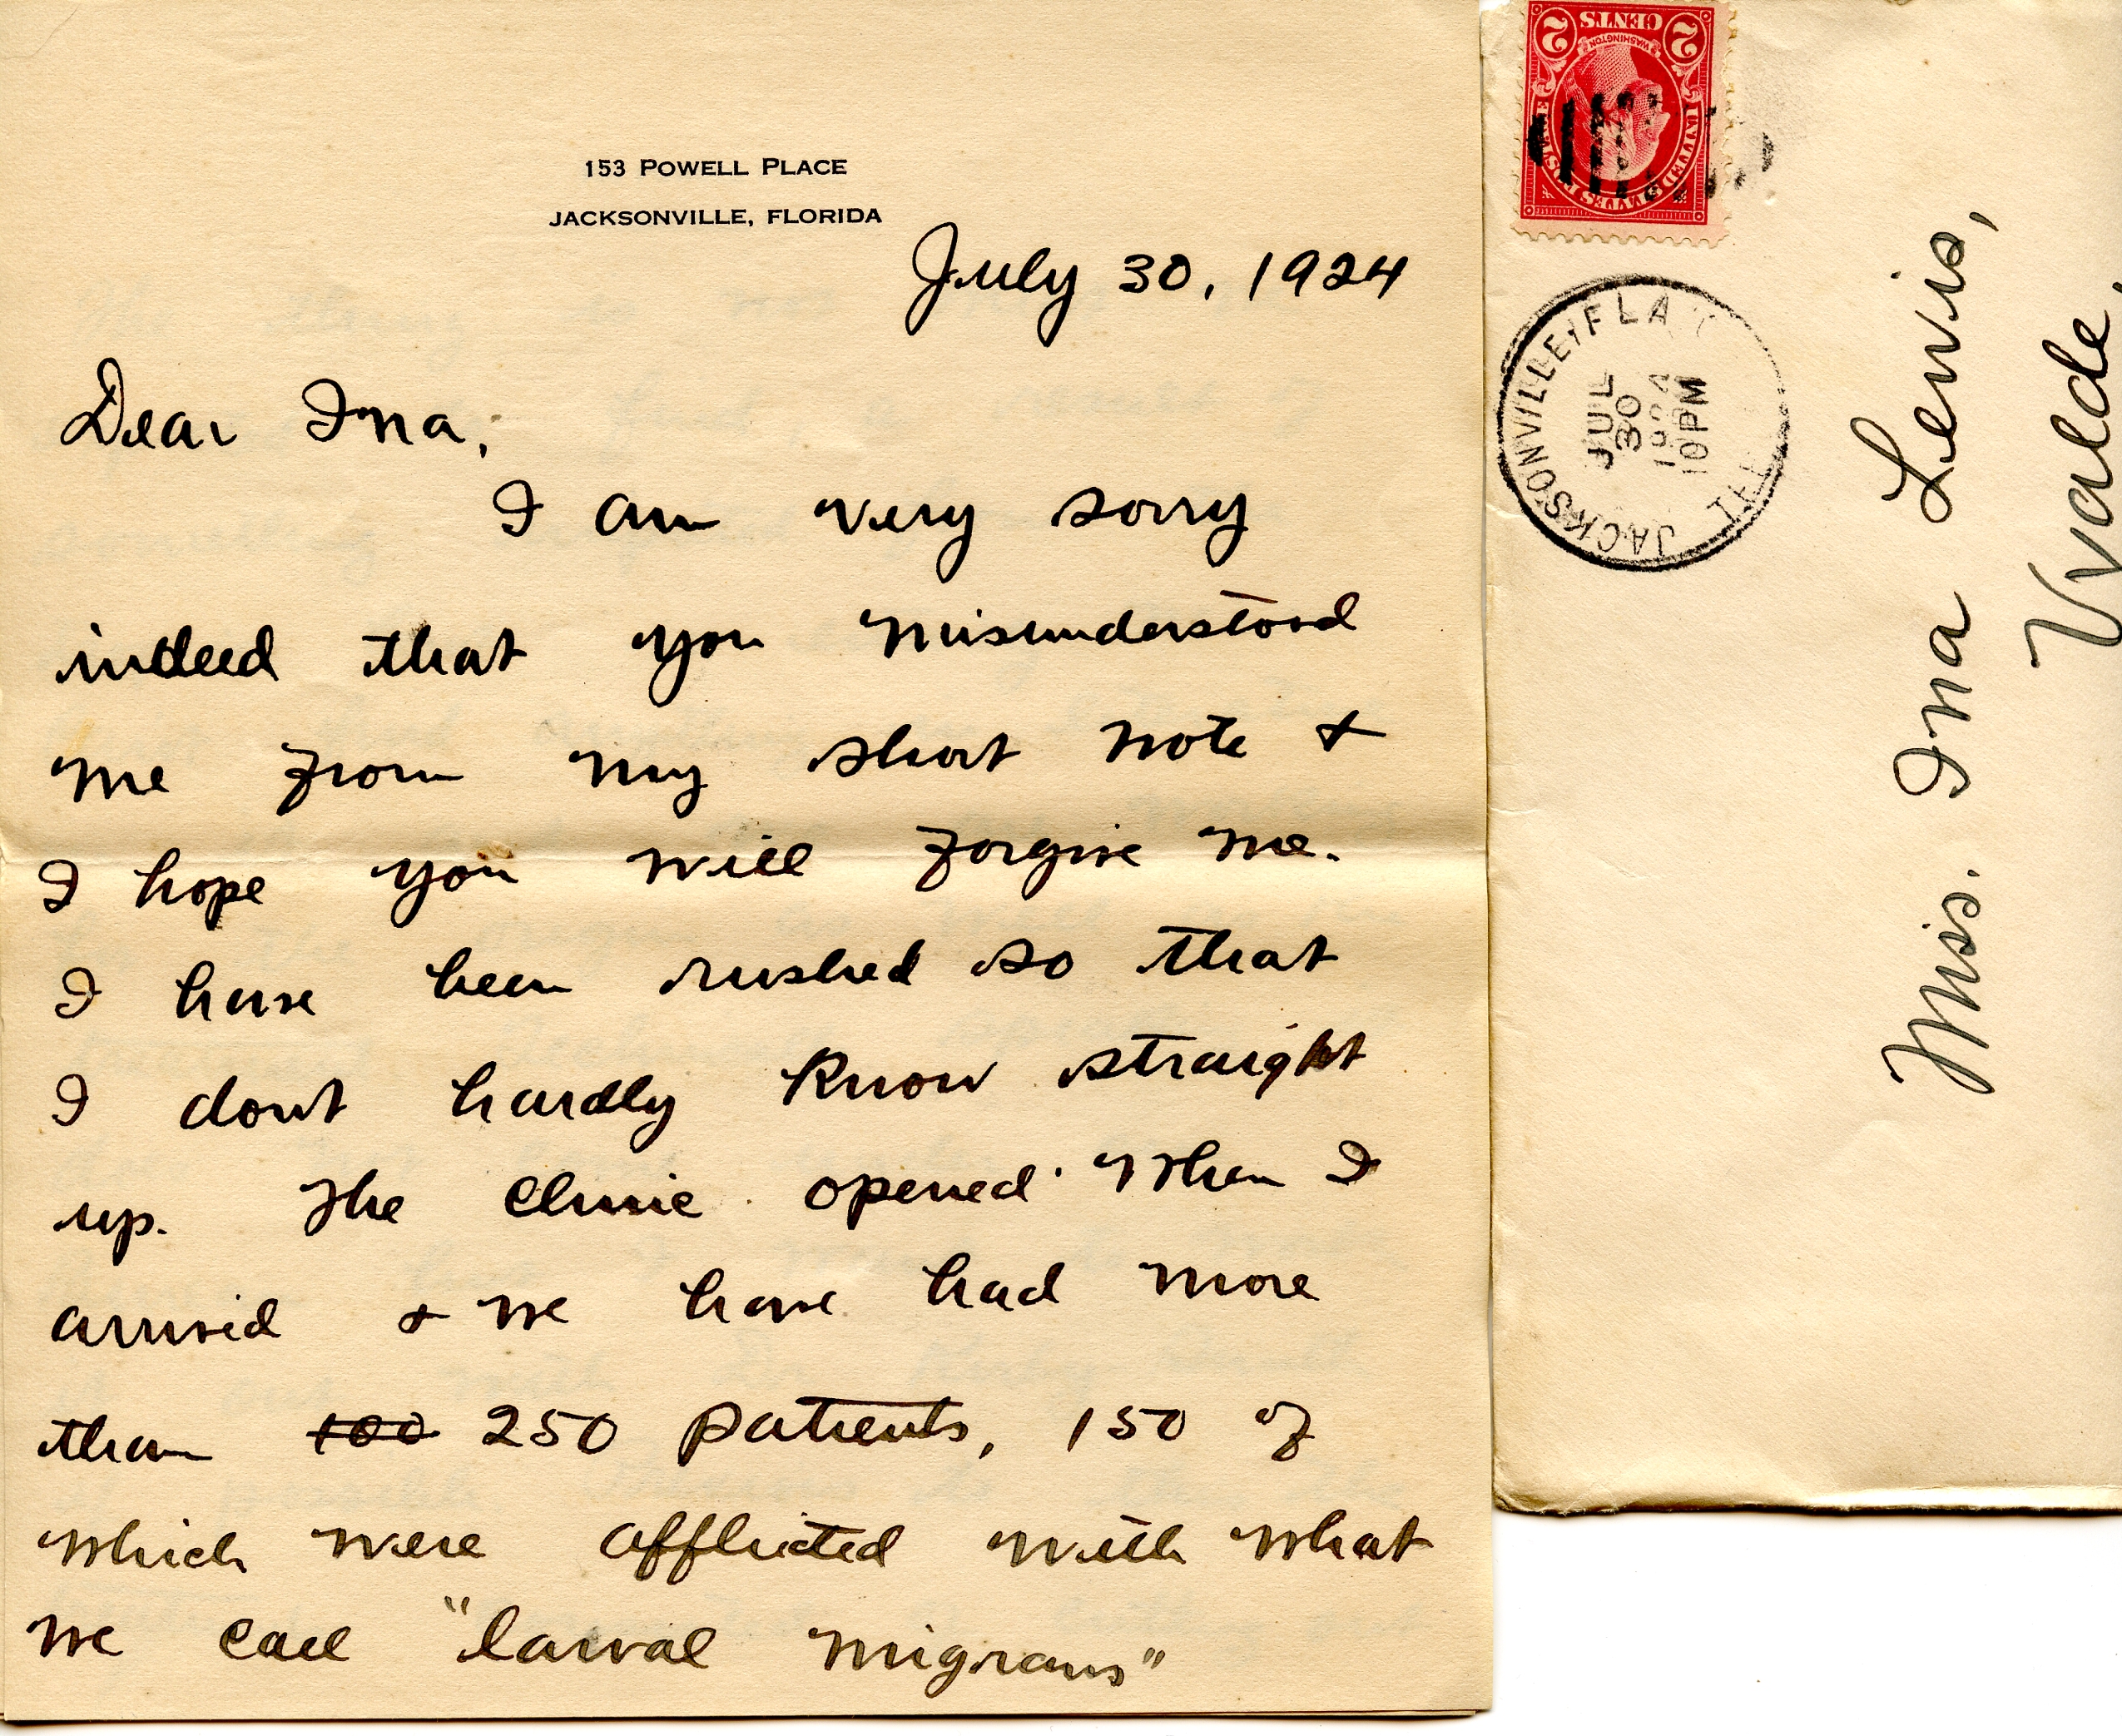 153 POWELL PLACE
JACKSONVILLE, FLORIDA
July 30, 1924
Dear Ina,
I am very sorry
indeed that you misunderstood
me from my short note &
I hope you will forgive me.
I have been rushed so that
I dont hardly know straight
up. The clinic opened when I
arrived & we have had more
than 100 250 patients, 150 of
which were afflicted with what
we call "larval migrans"
2 CENTS 2
WASHINGTON
UNITED STATES POSTAGE
JACKSONVILLE, FLA.
JUL
30
1924
10 PM
Miss. Ina Lewis,
Uvalde,